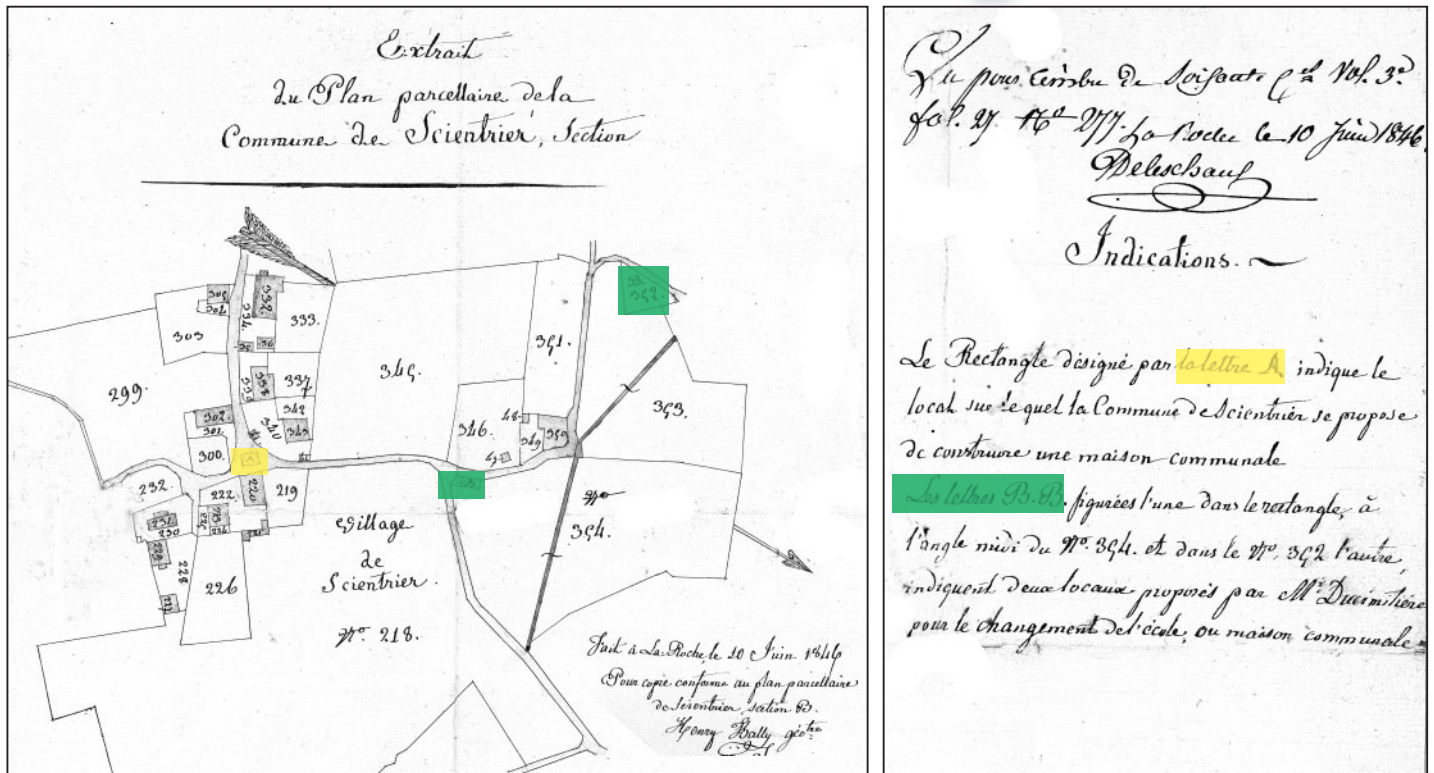 Extrait
du Plan parcellaire de la
Commune de Scientrier, Section
305
304
303
299.
334.
332.
333.
35
36
338
339
337
342
343
340
302.
301.
300.
A
232.
222.
220
219
231
230
229
228
226
345.
346.
48.
349
350
351.
B.
352.
353.
354.
N°
Village
de
Scientrier.
N°. 218.
Fait à La-Roche, le 10 Juin 1846
Pour copie conforme au plan parcellaire
de Scientrier, section B.
Henry Bally géotre
Vu pour timbre de Soixante Ces Vol. 3e
fol. 27. No 277. La Roche le 10 Juin 1846
Indications.
Le Rectangle désigné par la lettre A, indique le
local sur lequel la Commune de Scientrier se propose
de construire une maison communale
Les lettres B. B. figurées l'une dans le rectangle, à
l'angle midi du No. 354. et dans le No. 352 l'autre,
indiquent deux locaux proposés par Mr
pour le changement de l'école, ou maison communale